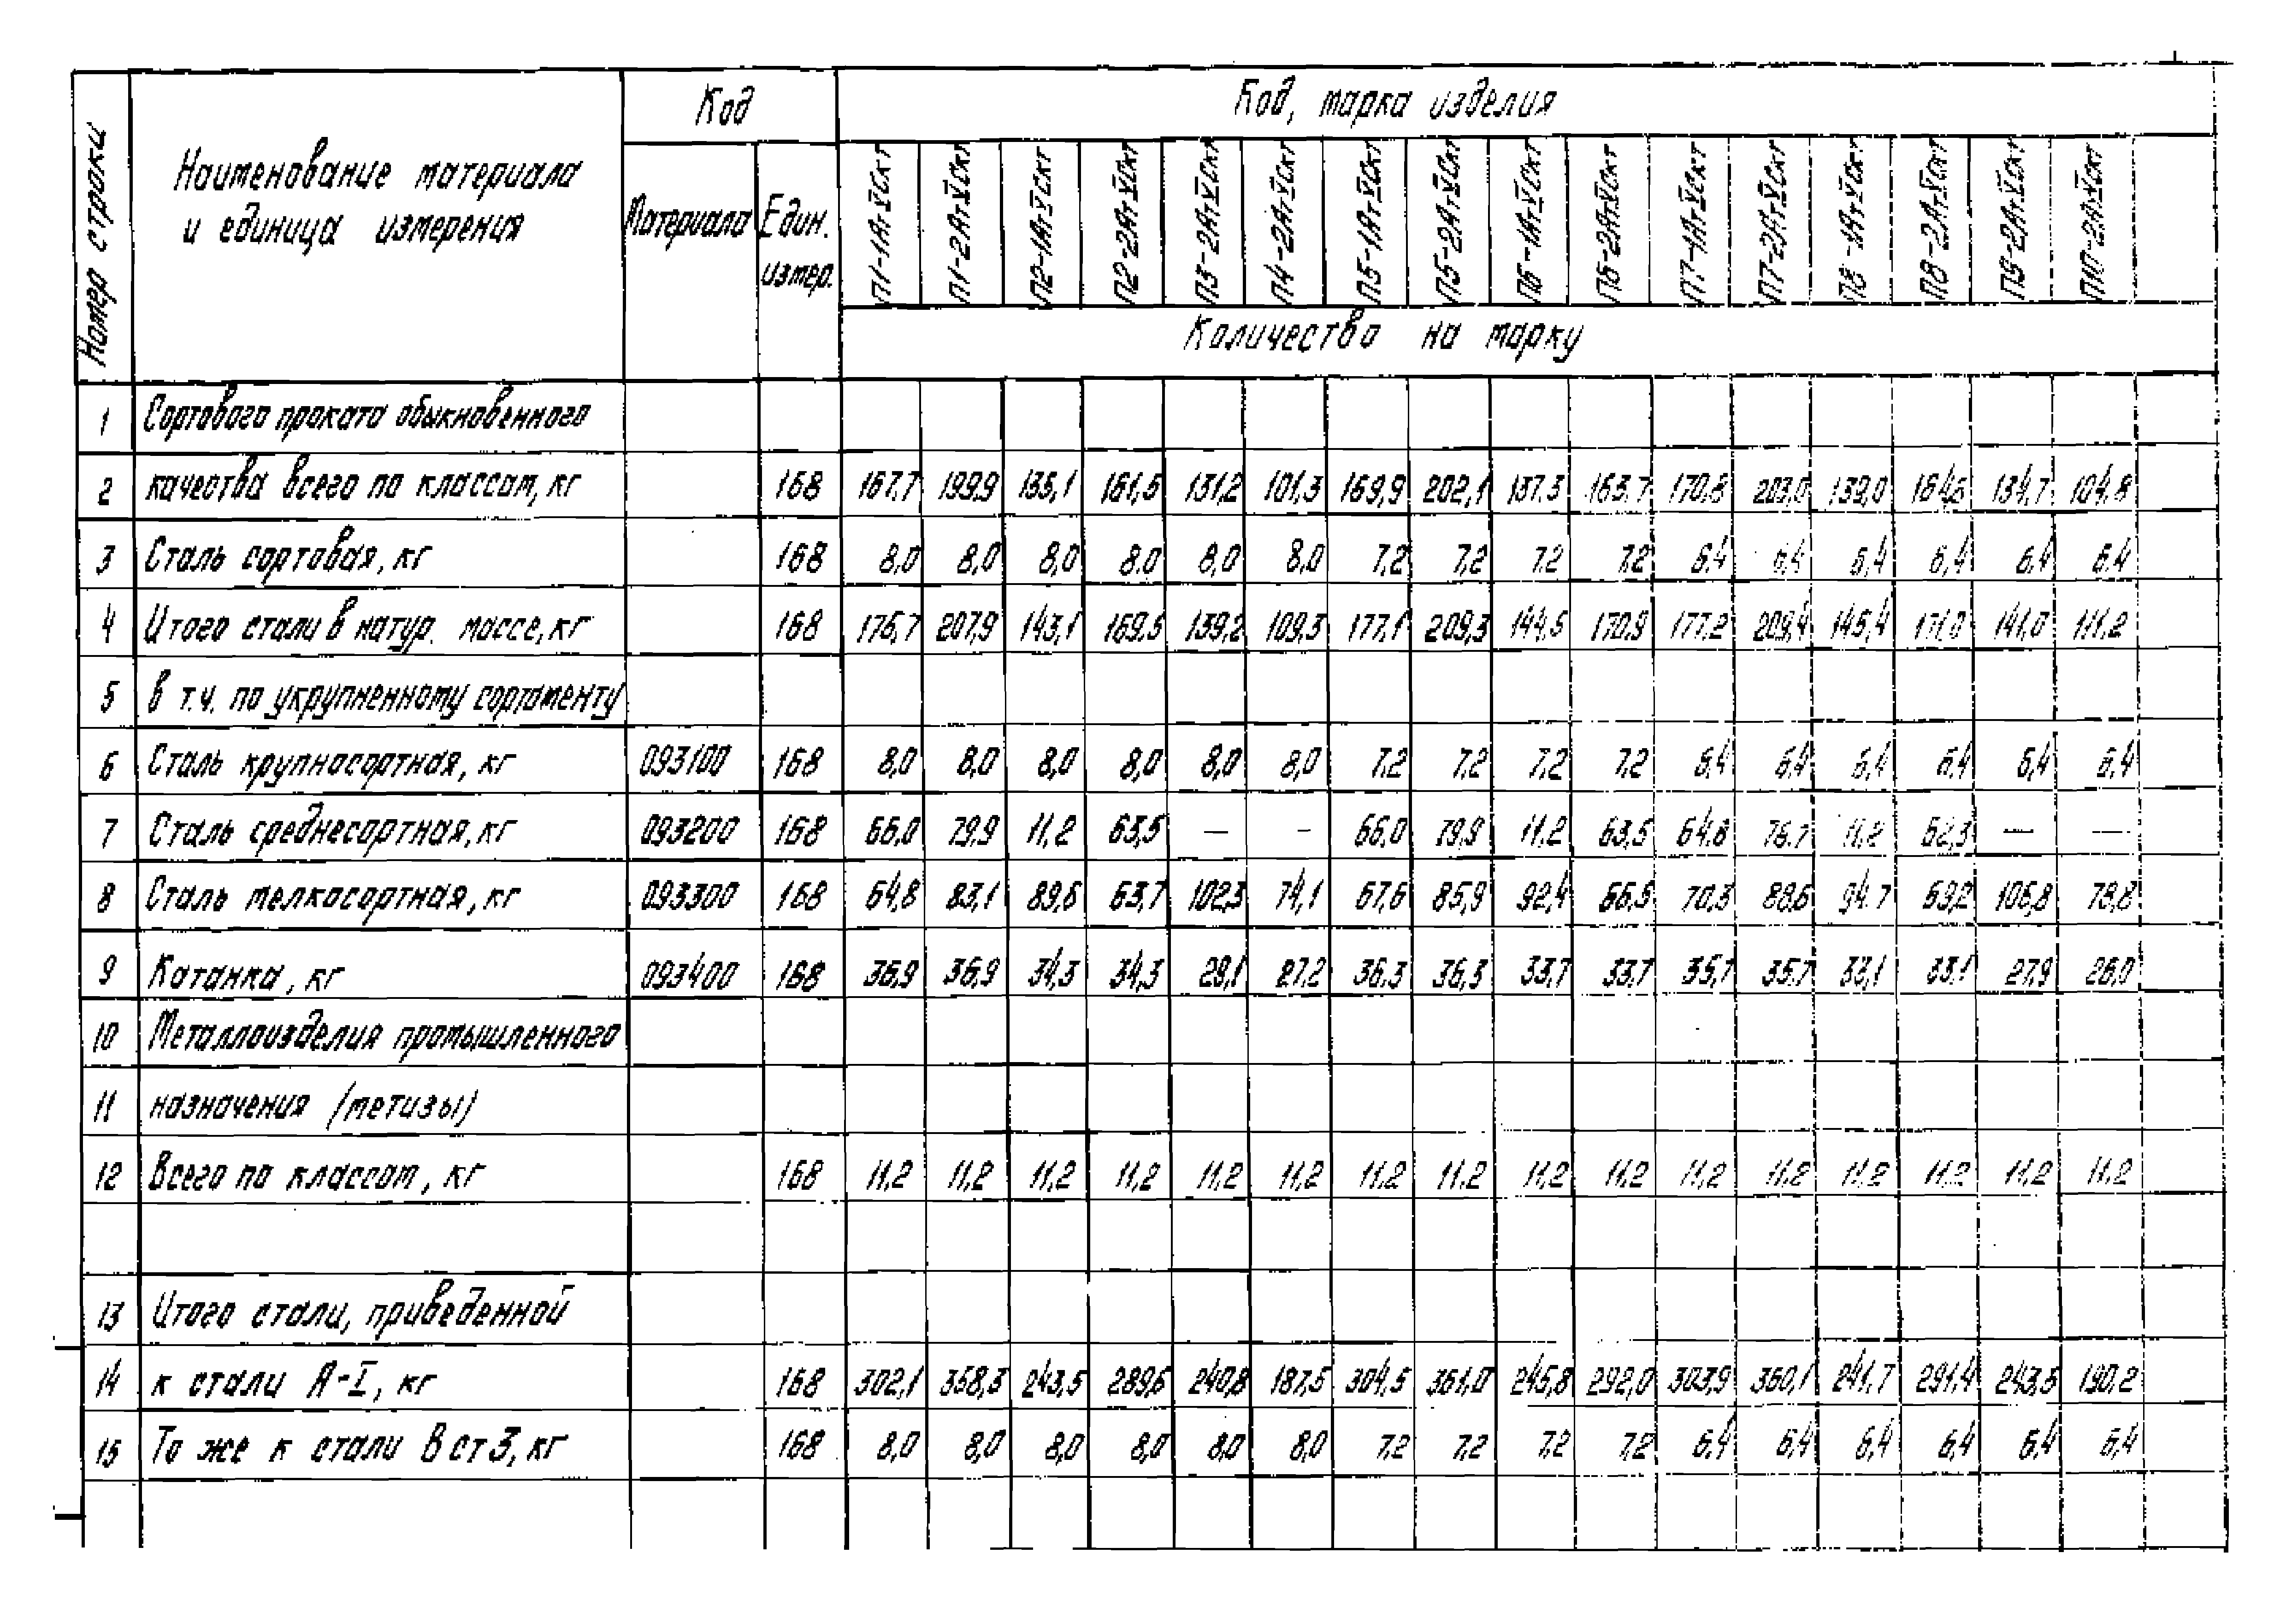 Номер строки
Наименование материала
и единица измерения
Код
Материала
Един.
измер.
Код, марка изделия
П1-1АтVскт
П1-2АтVскт
П2-1АтVскт
П2-2АтVскт
П3-2АтVскт
П4-2АтVскт
П5-1АтVскт
П5-2АтVскт
П6-1АтVскт
П6-2АтVскт
П7-1АтVскт
П7-2АтVскт
П8-1АтVскт
П8-2АтVскт
П9-2АтVскт
П10-2АтVскт
Количество на марку
1 Сортового проката обыкновенного
2 качества всего по классам, кг 168 167,7 199,9 135,1 161,5 131,2 101,3 169,9 202,1 137,3 163,7 170,8 203,0 139,0 164,6 134,7 104,8
3 Сталь сортовая, кг 168 8,0 8,0 8,0 8,0 8,0 8,0 7,2 7,2 7,2 7,2 6,4 6,4 6,4 6,4 6,4 6,4
4 Итого стали в натур. массе, кг 168 176,7 207,9 143,1 169,5 139,2 109,3 177,1 209,3 144,5 170,9 177,2 209,4 145,4 171,0 141,0 111,2
5 в т.ч. по укрупненному сортаменту
6 Сталь крупносортная, кг 093100 168 8,0 8,0 8,0 8,0 8,0 8,0 7,2 7,2 7,2 7,2 6,4 6,4 6,4 6,4 6,4 6,4
7 Сталь среднесортная, кг 093200 168 66,0 79,9 11,2 63,5 — – 66,0 79,9 11,2 63,5 64,8 76,7 11,2 62,3 — —
8 Сталь мелкосортная, кг 093300 168 64,8 83,1 89,6 63,7 102,3 74,1 67,6 85,9 92,4 66,5 70,3 88,6 94,7 69,2 106,8 78,8
9 Катанка, кг 093400 168 36,9 36,9 34,3 34,3 29,1 27,2 36,3 36,3 33,7 33,7 35,7 35,7 33,1 33,1 27,9 26,0
10 Металлоизделия промышленного
11 назначения /метизы/
12 Всего по классам, кг 168 11,2 11,2 11,2 11,2 11,2 11,2 11,2 11,2 11,2 11,2 11,2 11,2 11,2 11,2 11,2 11,2
13 Итого стали, приведенной
14 к стали А-I, кг 168 302,1 358,3 243,5 289,6 240,8 187,5 304,5 361,0 245,8 292,0 303,9 360,1 241,7 291,4 243,5 190,2
15 То же к стали Вст3, кг 168 8,0 8,0 8,0 8,0 8,0 8,0 7,2 7,2 7,2 7,2 6,4 6,4 6,4 6,4 6,4 6,4